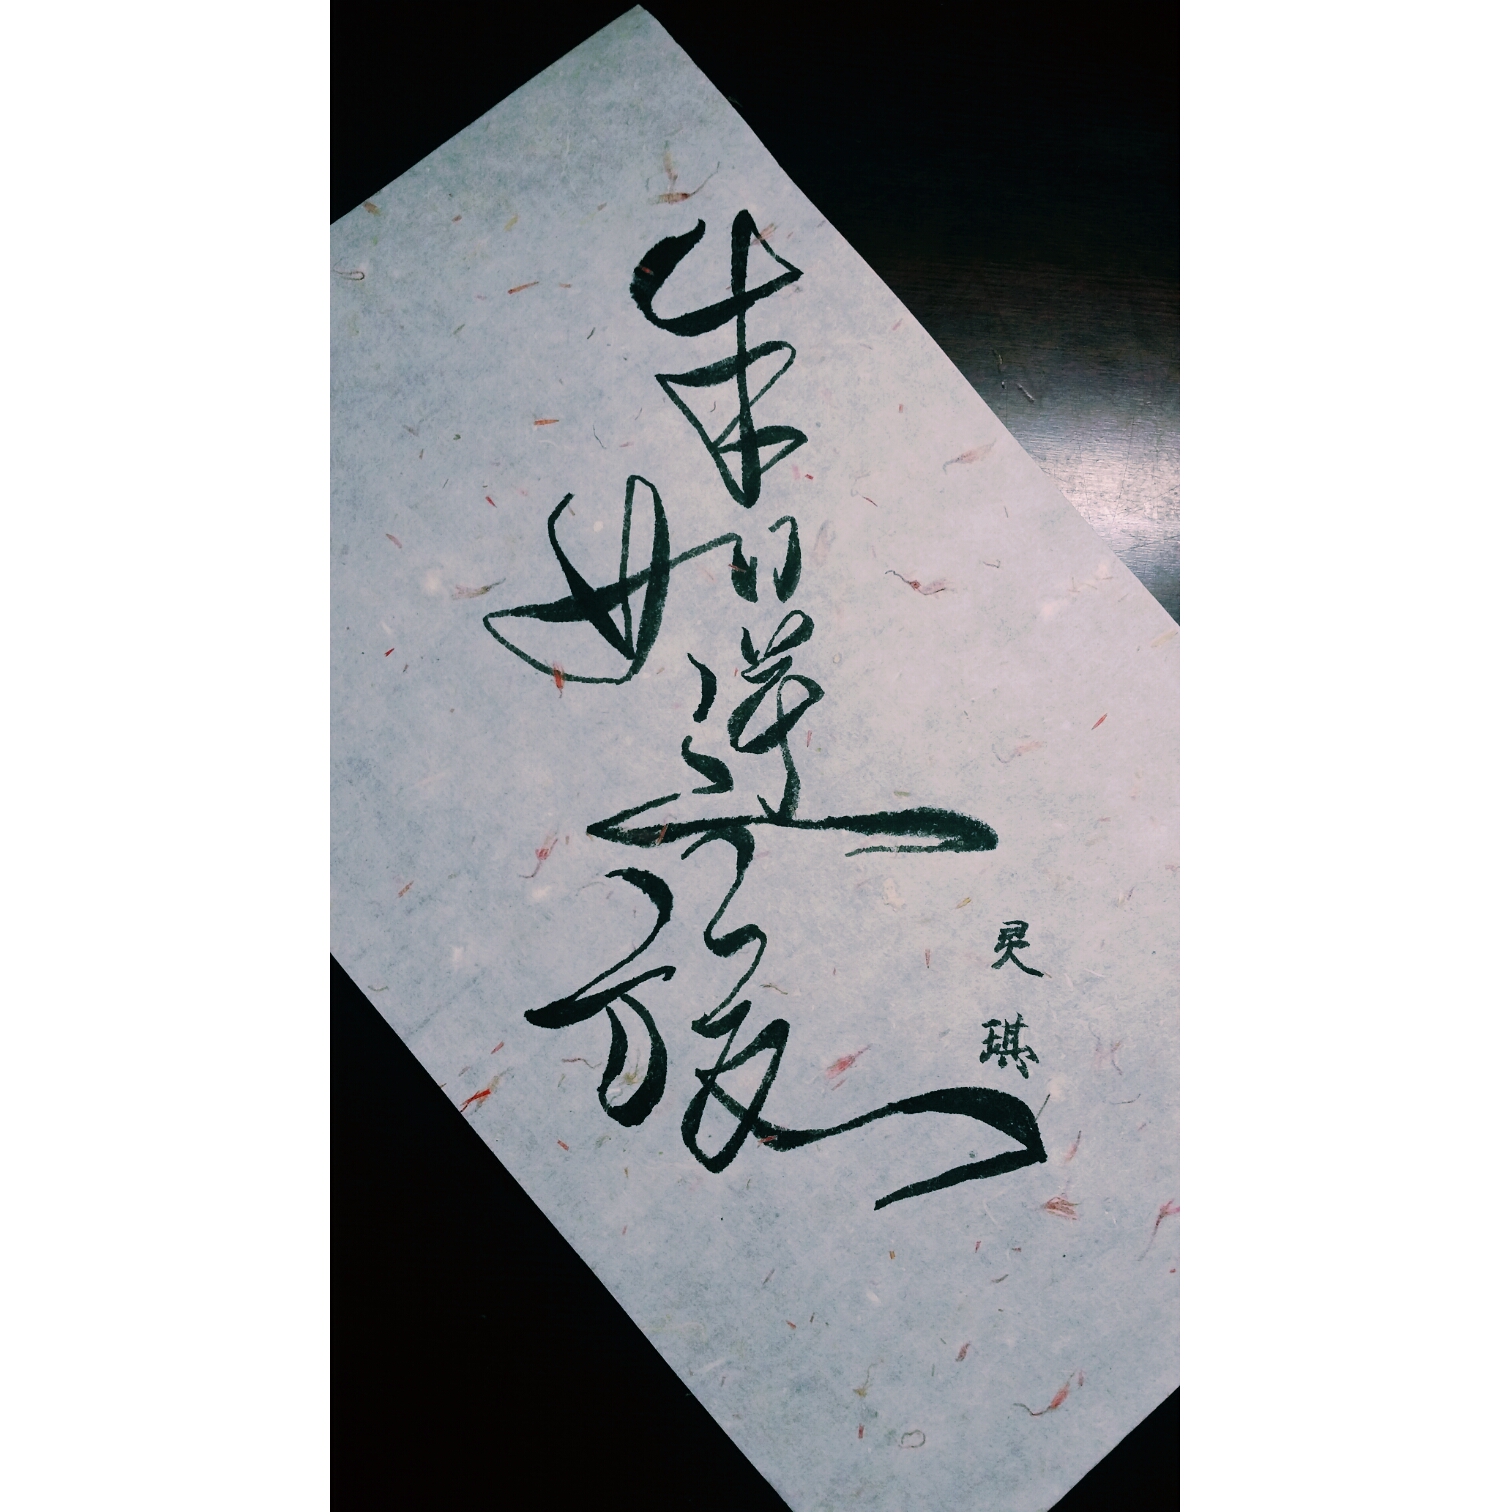 生如逆旅
灵琪